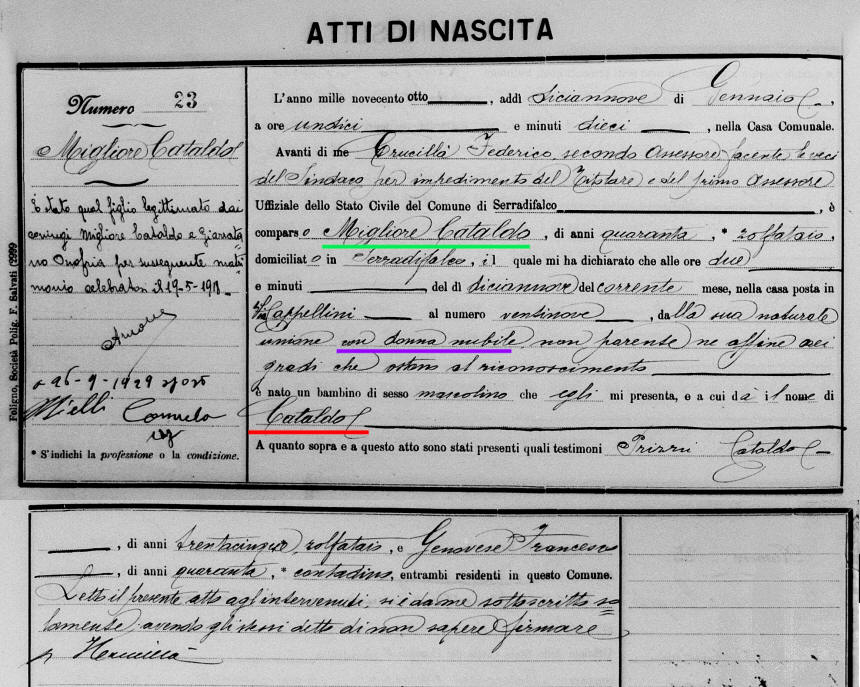 ATTI DI NASCITA
Numero 23
Migliore Cataldo
È stato qual figlio legittimato dai
coniugi Migliore Cataldo e Giarrata
no Onofria per susseguente matri
monio celebratosi il 19-5-191
26-9-1929 sposò
Mielli Carmela
* S'indichi la professione o la condizione.
Foligno, Società Polig. F. Salvati (2999
L'anno mille novecento otto, addì diciannove di Gennaio,
a ore undici e minuti dieci, nella Casa Comunale.
Avanti di me Crucillà Federico, secondo Assessore facente le veci
del Sindaco per impedimento del Titolare e del primo Assessore
Uffiziale dello Stato Civile del Comune di Serradifalco, è
comparso Migliore Cataldo, di anni quaranta, * zolfataio,
domiciliato in Serradifalco, il quale mi ha dichiarato che alle ore due
e minuti del dì diciannove del corrente mese, nella casa posta in
Via Cappellini al numero ventinove, dalla sua naturale
unione con donna nubile non parente ne affine nei
gradi che ostano al riconoscimento
è nato un bambino di sesso mascolino che egli mi presenta, e a cui dà il nome di
Cataldo
A quanto sopra e a questo atto sono stati presenti quali testimoni Prizzi Cataldo
, di anni trentacinque, zolfataio, e Genovese Francesco
, di anni quaranta, * contadino, entrambi residenti in questo Comune.
Letto il presente atto agl'intervenuti si è da me sottoscritto so
lamente, avendo gli stessi detto di non sapere firmare